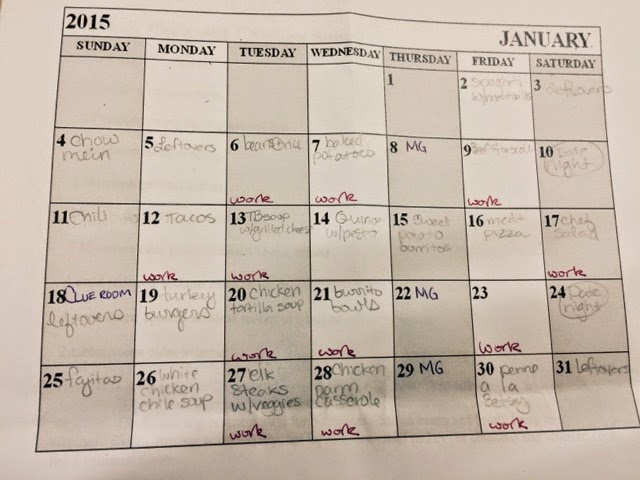 2015
JANUARY
SUNDAY MONDAY TUESDAY WEDNESDAY THURSDAY FRIDAY SATURDAY
1
2 spaghetti
w/meatballs
3 leftovers
4 chow
mein
5 leftovers
6 beans & rice
work
7 baked
potatoes
work
8 MG
9
work
10 Date
night
11 Chili
12 Tacos
work
13 TB soup
w/grilled cheese
work
14 Quinoa
w/pesto
15 Sweet
potato
burritos
16 medt
pizza
17 chef
salad
work
18 CLUE ROOM
leftovers
19 turkey
burgers
20 Chicken
tortilla soup
work
21 burrito
bowls
work
22 MG
23
work
24 Date
night
25 fajitas
26 white
chicken
chile soup
27 elk
steaks
w/veggies
work
28 Chicken
parm
casserole
work
29 MG
30 penne
a la
Betsy
work
31 leftovers